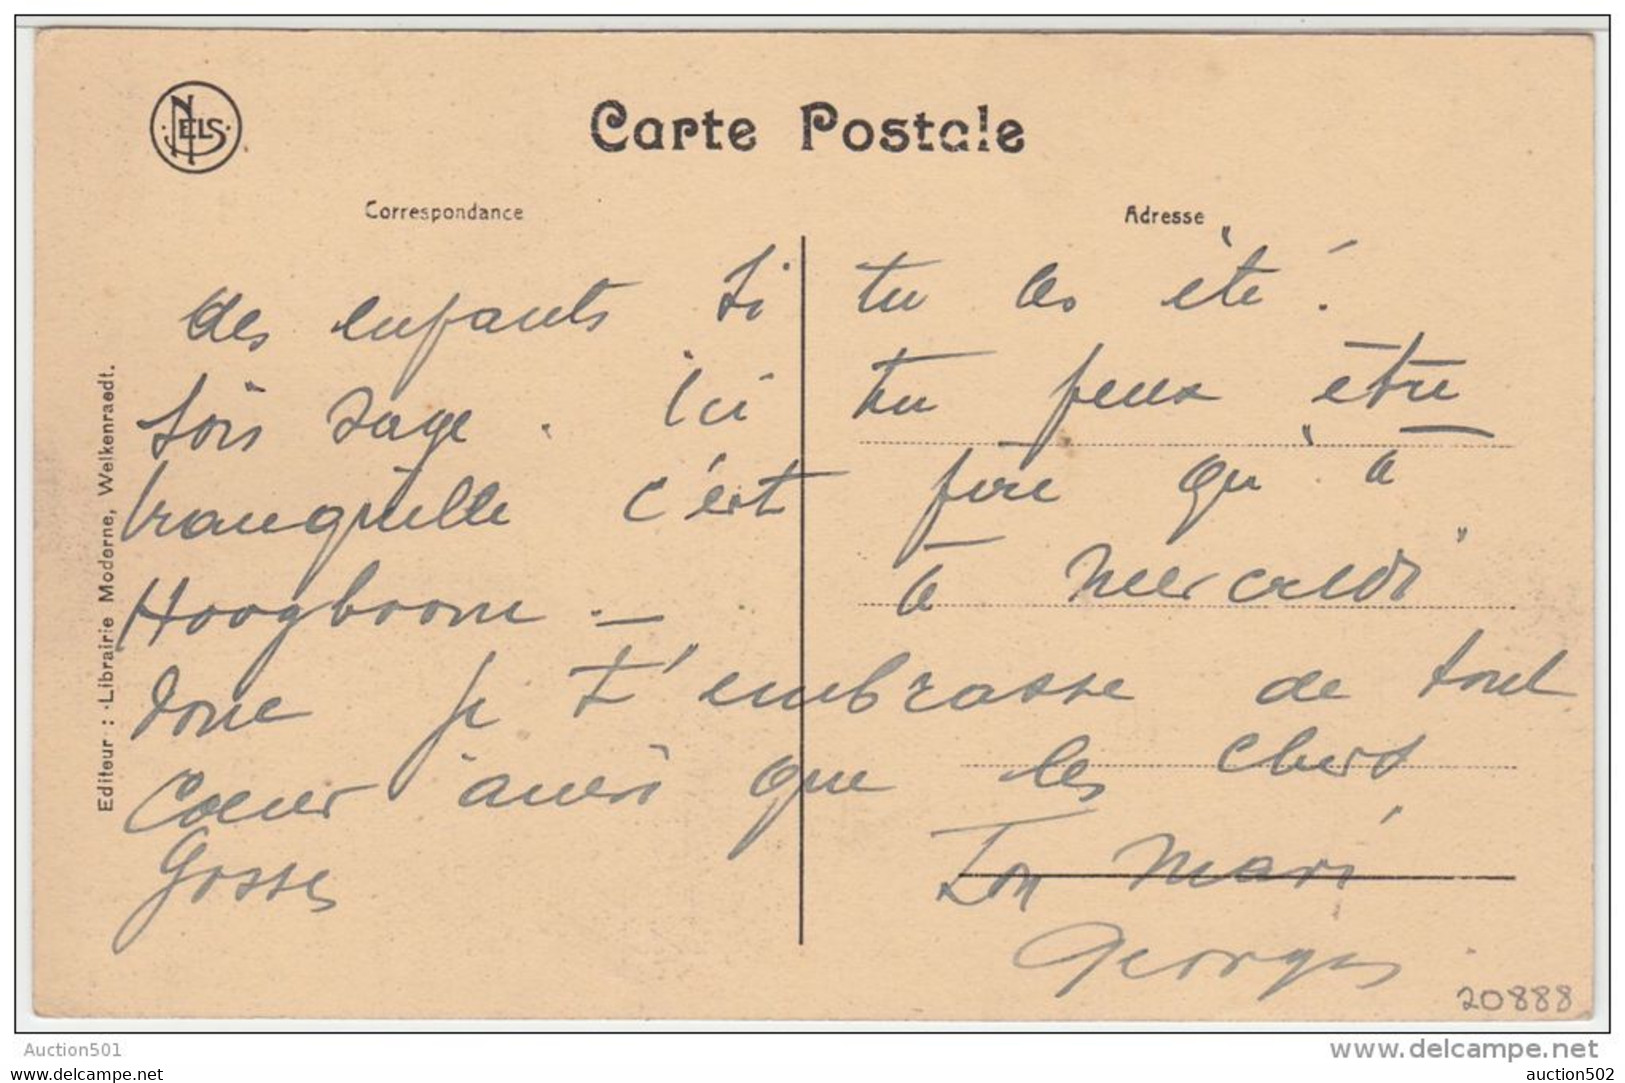 NELS
Carte Postale
Correspondance
Adresse
Editeur : Librairie Moderne, Welkenraedt.
des enfants si tu les été !
sois sage . Ici tu peux être
tranquille c'est pire qu'à
Hoogboom . — à
donc je t'embrasse de tout
Coeur ainsi que les chers
Gosses Ton Mari
Georges
20888
Auction501
www.delcampe.net
auction501
auction502